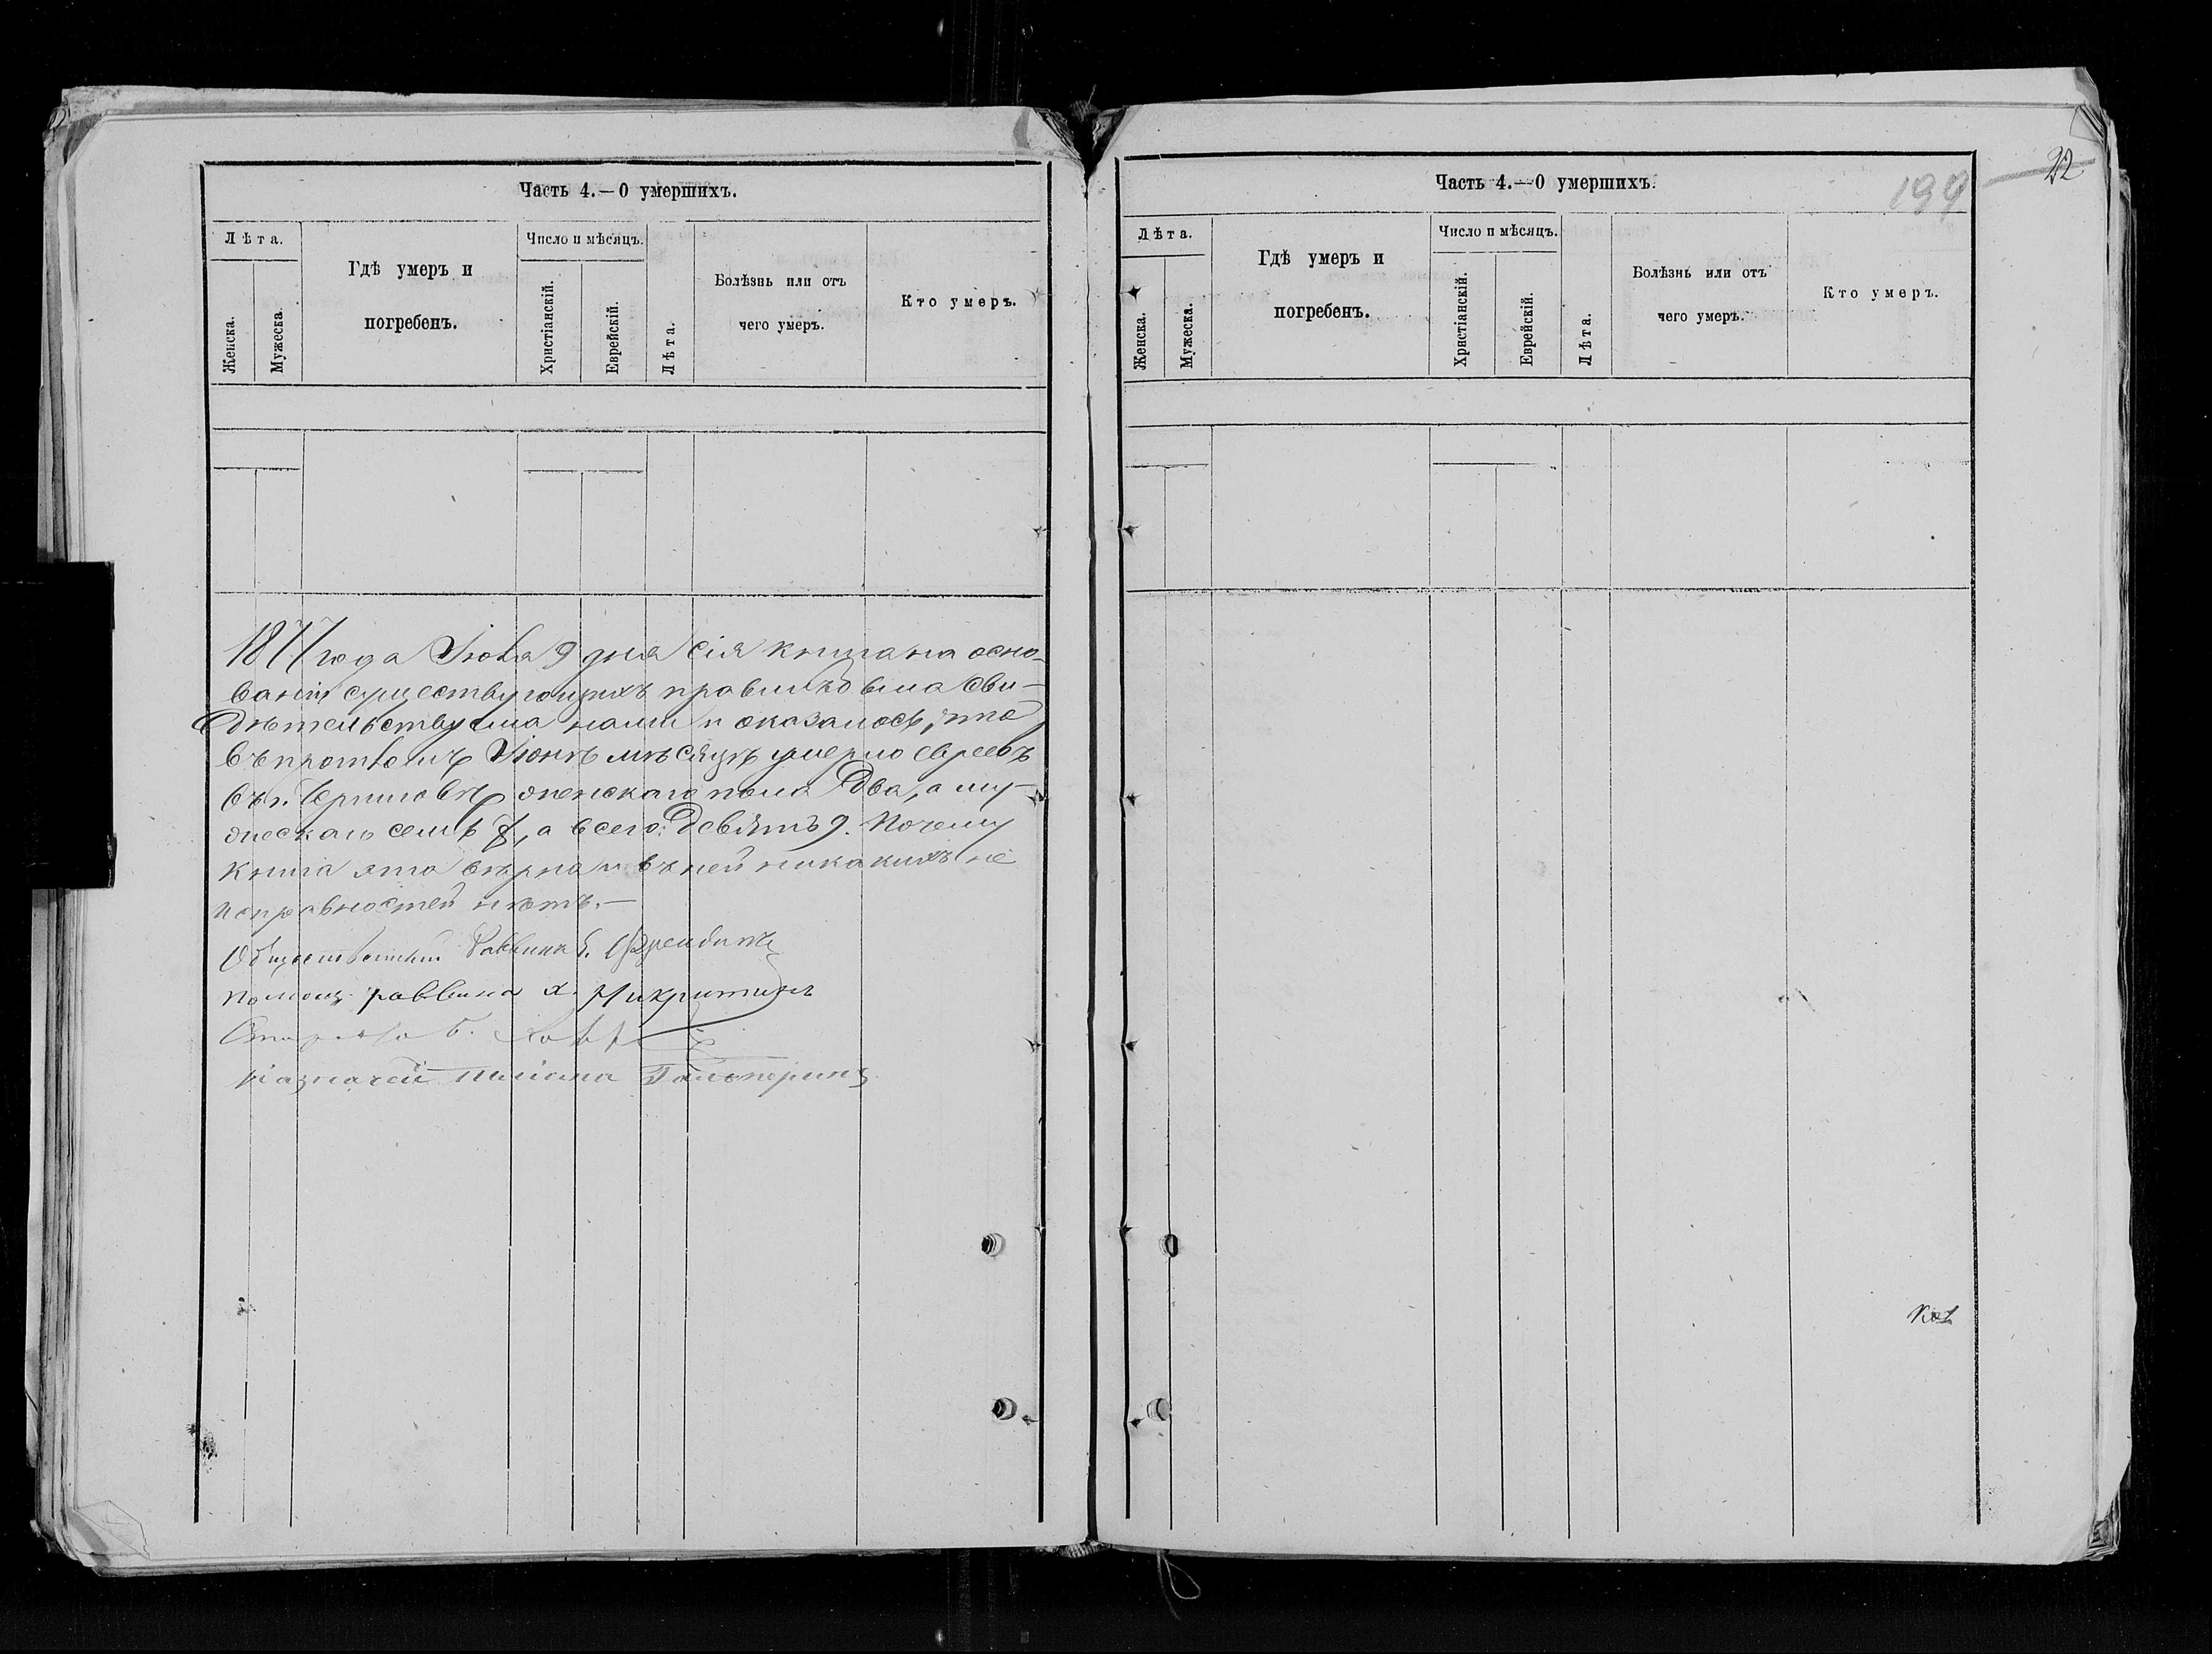 Часть 4.—О умершихъ.
Лѣта.
Женска.
Мужеска.
Гдѣ умеръ и
погребенъ.
Число и мѣсяцъ.
Христіанскій.
Еврейскій.
Лѣта.
Болѣзнь или отъ
чего умеръ.
Кто умеръ.
1877 года Іюля 9 дня сія книга на осно-
ваніи существующихъ правилъ была сви-
дѣтельствуема нами и оказалось, что
въ прошломъ Іюнѣ мѣсяцѣ умерло евреевъ
въ г. Черниговѣ женскаго пола два, а му-
жескаго семь 7, а всего: девять 9. Почему
книга эта вѣрна и въ ней никакихъ не
исправностей нѣтъ.—
Общественный Раввинъ
Помощ. раввина Х. Никритинъ
Староста Б.
Казначей Гальперинъ
Часть 4.—О умершихъ.
199
22
Лѣта.
Женска.
Мужеска.
Гдѣ умеръ и
погребенъ.
Число и мѣсяцъ.
Христіанскій.
Еврейскій.
Лѣта.
Болѣзнь или отъ
чего умеръ.
Кто умеръ.